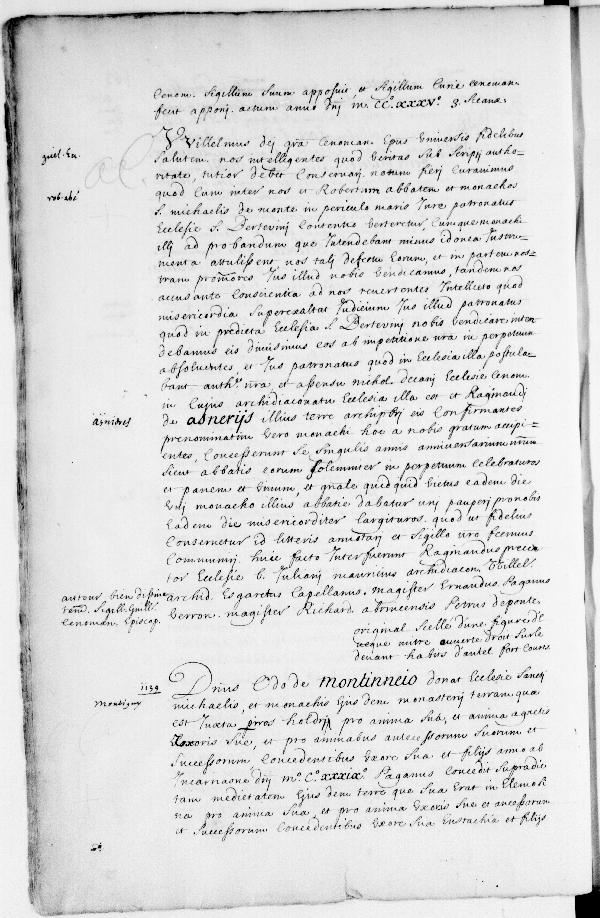 Cenom. Sigillum Suum apposuit et Sigillum Curie Cenoman.
fecit apponi. actum anno dnj m. CCo. xxxvo. 3.
Villelmus dej gra Cenoman. Epus Universis fidelibus
guiel. En.
Salutem. nos intelligentes quod Veritas Sub Scripti autho-
ritate, tutior debet Conservarj notum fierj Curavimus
rob. abe
quod Cum inter nos et Robertum abbatem et monachos
S. michaelis de monte in periculo maris Jure patronatus
Ecclesie S. Dertevinj Contentio Verteretur Cumque monachi
illj ad probandum que Intendebant minus idonea Instru-
menta attulissent nos talj defectu Eorum, et in partem nos-
tram promores Jus illud nobis Vendicamus, tandem nos
accusante Conscientia ad nos revertentes Intellecto quod
misericordia Superexaltat Judicium Jus illud patronatus
quod in predicta Ecclesia S. Dertevinj nobis Vendicare inten
debamus eis dimisimus eos ab impetitione nra in perpetuum
absoluentes, et Jus patronatus quod in Ecclesia illa postula-
bant authte nra et assensu nichol. decanj Ecclesie Cenom.
in Cujus archidiaconatu Ecclesia illa est et Ragmundj
asnieres
de asnerijs illius terre archipbrj eis Confirmantes
prenominatim Vero monachi hoc a nobis gratum accipi-
entes, Concesserunt Se Singulis annis anniversarium nrum
Sicut abbatis eorum Solemniter in perpetuum Celebraturos
et panem et Vinum, et gnale quidquid Victus eadem die
Unj monacho illius abbatie dabatur unj pauperj pro nobis
Eadem die misericorditer largituros. quod ut fidelius
Conservetur id litteris annotarj et Sigillo nro fecimus
Communirj. huic facto Interfuerunt Ragmundus precen
tor Ecclesie b. Julianj mauricius archidiacon. Willel.
autour bien dessine
tend. Sigill. Guill.
Cenoman. Episcop.
archid. Esgaretus Capellanus, magister Ernaudus. Paganus
Verron. magister Richard. abrincensis Petrus deponte.
original Scellé d'une figure d'e
ueque mitre ouuerte droit Sur le
deuant habits d'autel fort Courts
1139
montigny
Drius Odo de montinneio donat Ecclesie Sanctj
michaelis, et monachis Ejusdem monasterij terram qua
est Juxta piros holdrij pro anima Sua, et anima agnetis
Uxoris Sue, et pro animabus antecessorum Suorum et
Successorum, Concedentibus Uxore Sua et filijs anno ab
Incarnaone dnj mo. Co. xxxixo. Paganus Concedit Supradic
tam medietatem Ejusdem terre que Sua Erat in Elemosi
na pro anima Sua, et pro anima Uxoris Sue et ancessorum
et Successorum Concedentibus Uxore Sua Eustachia et filijs